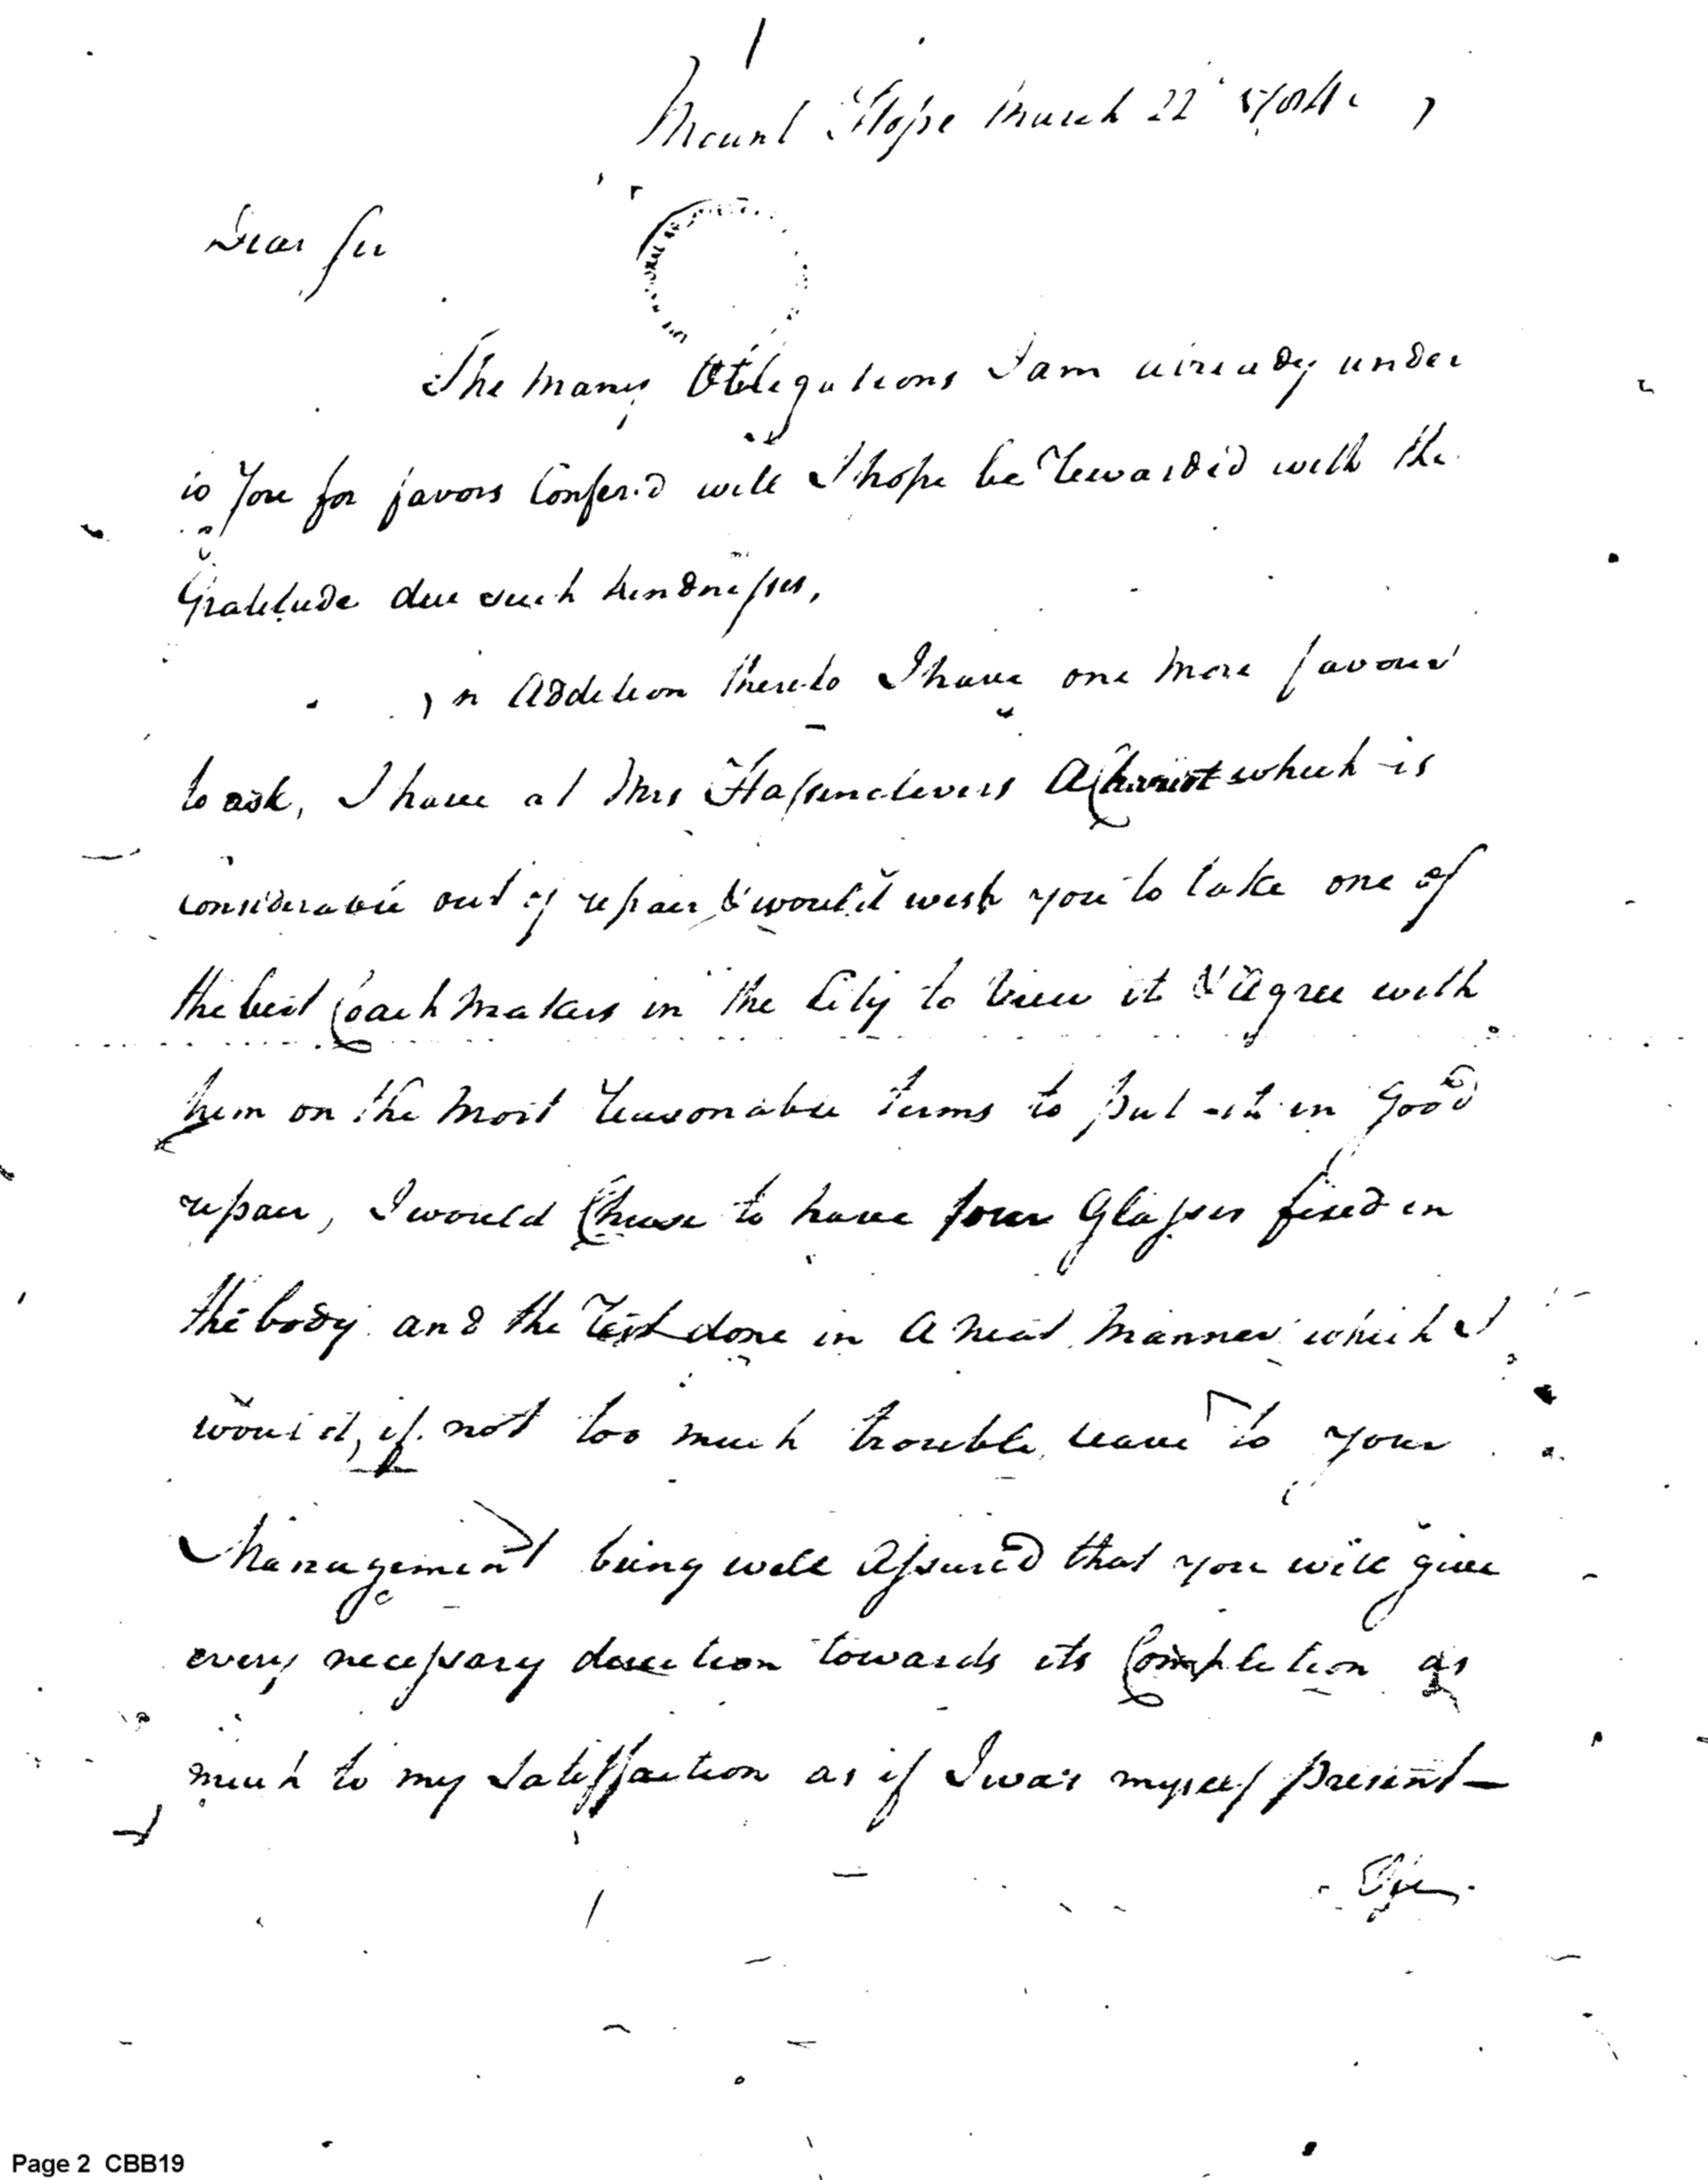 Mount Hope March 22
Dear Sir
The many Obligations I am already under
to You for favors Confer'd will I hope be Rewarded with the
Gratitude due such kindnesses,
In Addition thereto I have one more favour
to ask, I have at Mrs Hasenclevers A Chariot which is
considerable out of repair & would wish you to take one of
the best Coach Makers in the City to View it & Agree with
him on the most Reasonable terms to put it in Good
repair, I would Chuse to have four Glasses fixed in
the body and the Rest done in A neat Manner which I
would, if not too much trouble, leave to your
Management being well Assured that you will give
every necessary direction towards its Completion as
much to my Satisfaction as if I was myself present —
Page 2 CBB19